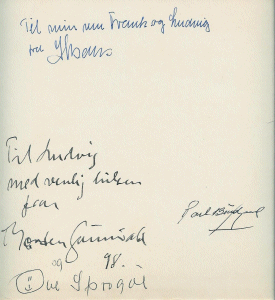 Til min ven Frants og Ludvig
fra
Til Ludvig
med venlig hilsen
fra
Morten Grunwald
og 98.
Ove Sprogøe
Poul Bundgaard